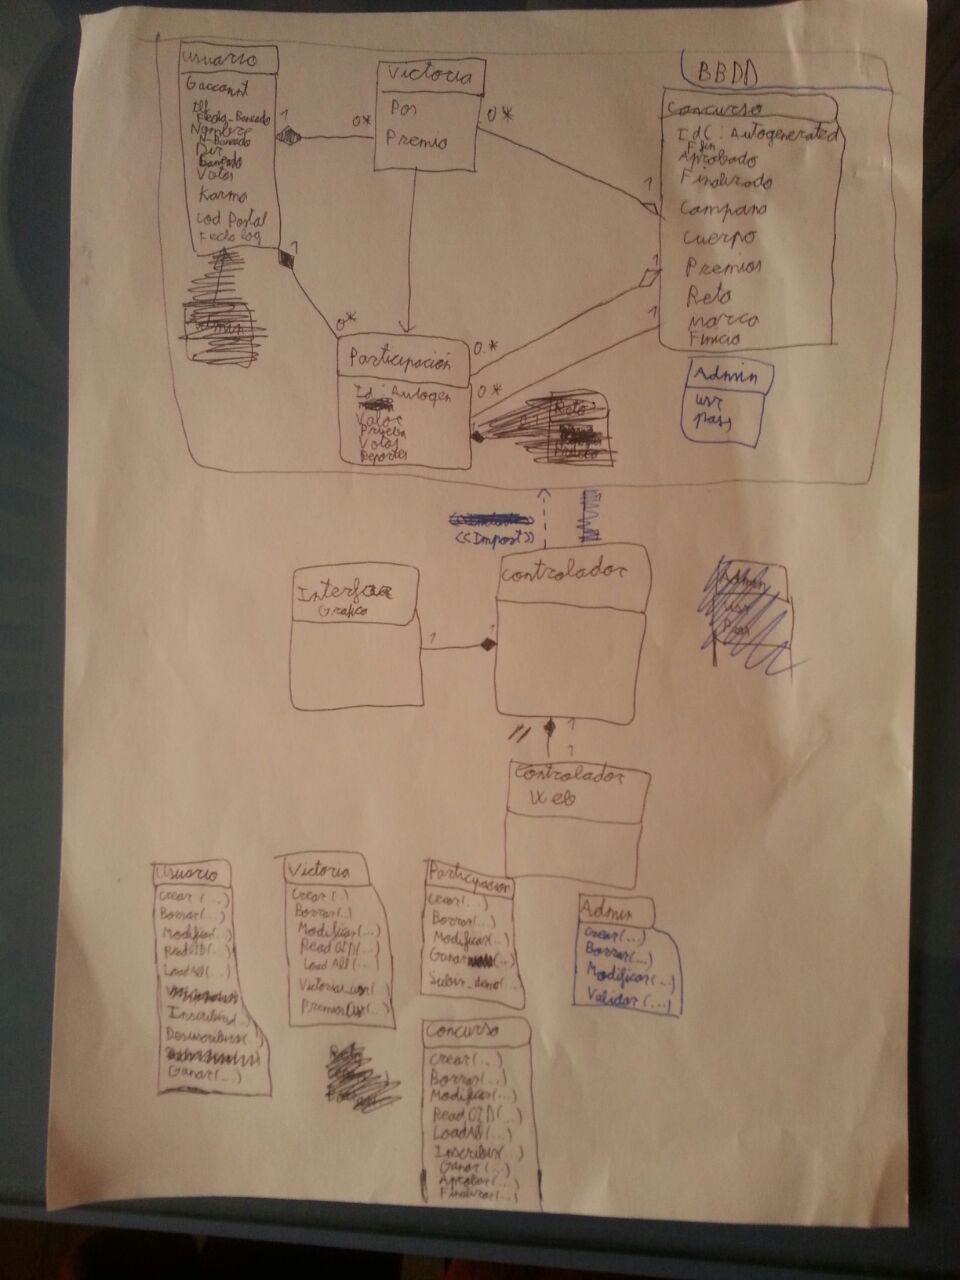 Usuario
Gaccount
Id
Fecha_Baneado
Nombre
N_Baneado
Dir
Baneado
Votos
Karma
Cod Postal
Fecha log
1
1
Victoria
Pos
Premio
0*
0*
BBDD
Concurso
Id( : Autogenerated
Ffin
Aprobado
Finalizado
Campaña
Cuerpo
Premios
Reto
Marca
Finicio
1
1
1
Admin
usr
pass
0*
Participación
Id : Autogen
Valor
Prueba
Votos
Deportes
0.*
0*
<<Import>>
Interfaz
Grafica
1
1
Controlador
1
1
Controlador
Web
Usuario
Crear (...)
Borrar(...)
Modificar(...)
ReadOID(...)
LoadAll(...)
Inscribirs(..)
Desuscribirse(...)
Ganar(...)
Victoria
Crear (..)
Borrar(..)
Modificar(...
ReadOID(...
Load All (...
Victorias_usr(...
PremiosUsr(..)
Participación
Crear(...)
Borrar(...)
Modificar(..
Ganar (...)
Subir_demo(...
Admin
Crear(...)
Borrar(...)
Modificar(...)
Validar (...)
Concurso
Crear(...)
Borrar(...)
Modificar(...)
ReadOID(...)
LoadAll(...)
Inscribir(...)
Ganar (...)
Aprobar(...)
Finalizar(...)